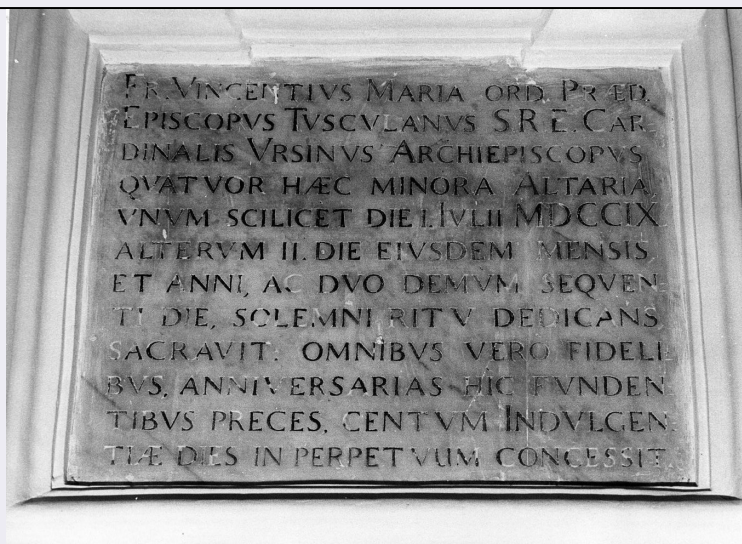 FR. VINCENTIVS MARIA ORD. PRÆD.
EPISCOPVS TVSCVLANVS S R E. CAR
DINALIS VRSINVS ARCHIEPISCOPVS
QVATVOR HÆC MINORA ALTARIA,
VNVM SCILICET DIE I. IVLII MDCCIX.
ALTERVM II. DIE EIVSDEM MENSIS,
ET ANNI, AC DVO DEMVM SEQVEN
TI DIE, SOLEMNI RITV DEDICANS
SACRAVIT: OMNIBVS VERO FIDELI
BVS, ANNIVERSARIAS HIC FVNDEN
TIBVS PRECES, CENTVM INDVLGEN
TIÆ DIES IN PERPETVUM CONCESSIT.